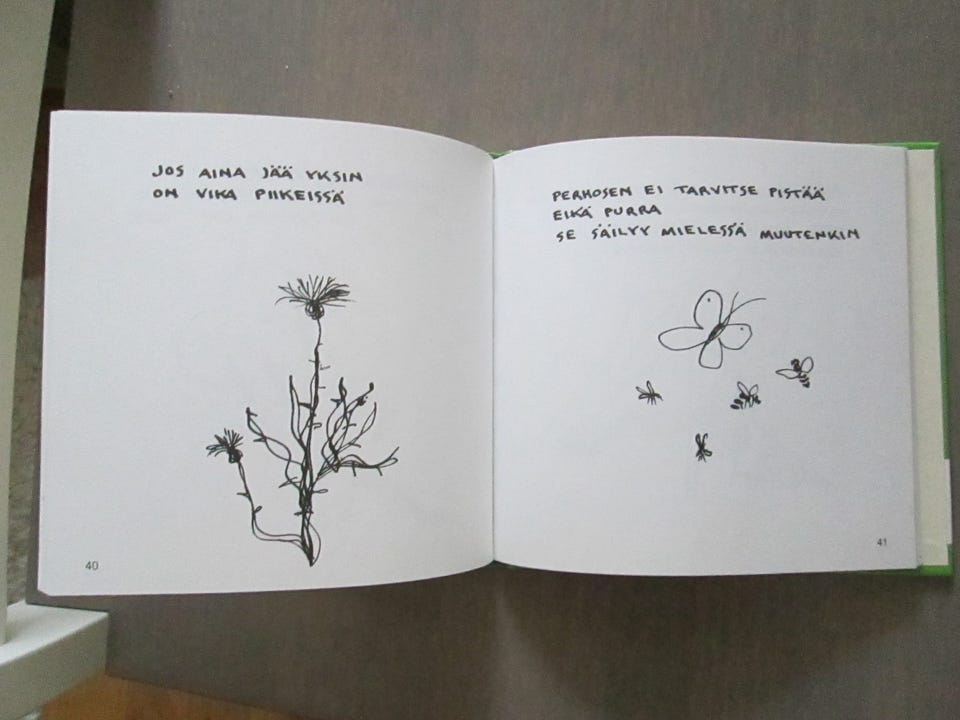 JOS AINA JÄÄ YKSIN
ON VIKA PIIKEISSÄ
40
PERHOSEN EI TARVITSE PISTÄÄ
EIKÄ PURRA
SE SÄILYY MIELESSÄ MUUTENKIN
41